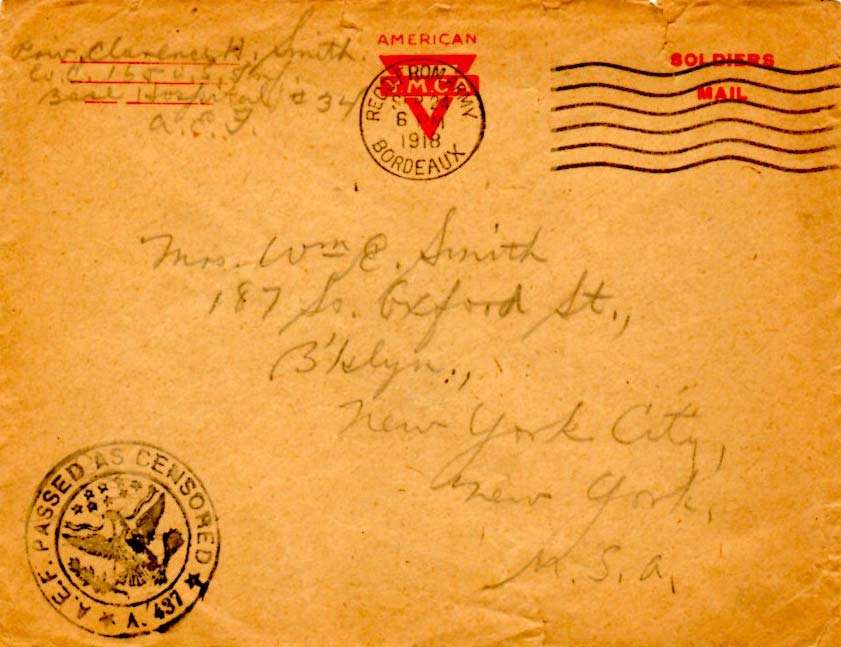 Clarence H. Smith.
Base Hospital # 34
A.E.F.
AMERICAN
Y.M.C.A.
SOLDIERS
MAIL
REC'D FROM ARMY
6
1918
BORDEAUX
Mrs. Wm E. Smith
187 So. Oxford St.,
B'klyn.,
New York City,
New York,
U.S.A.
A.E.F. PASSED AS CENSORED
A. 437